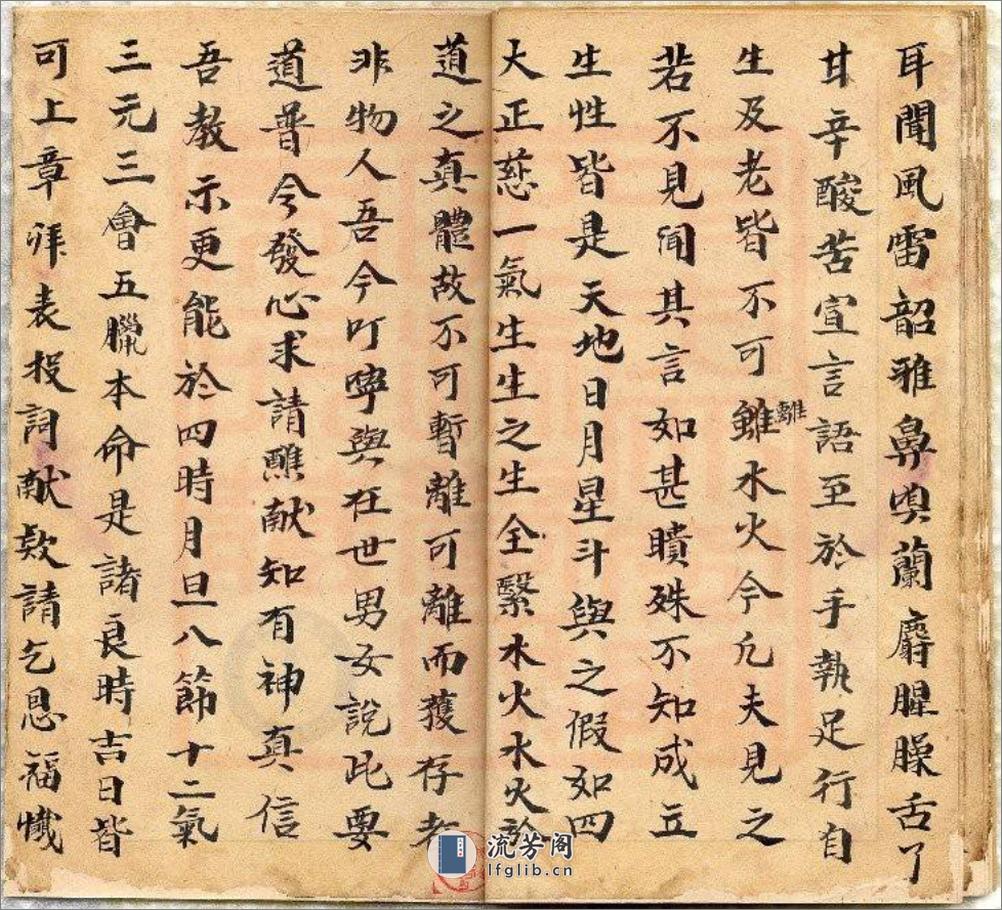 耳聞風雷韶雅鼻嗅蘭麝腥臊舌了
甘辛酸苦宣言語至於手執足行自
生及老皆不可雖離水火今凡夫見之
若不見聞其言如甚瞶殊不知成立
生性皆是天地日月星斗與之假如四
大正慈一氣生生之生全繫水火水火於
道之真體故不可暫離可離而獲存者
非物人吾今叮嚀與在世男女說此要
道普令發心求請醮献知有神真信
吾教示更能於四時月旦八節十二氣
三元三會五臘本命是諸良時吉日皆
可上章拜表投詞献欵請乞恩福懺
流芳阁
lfglib.cn